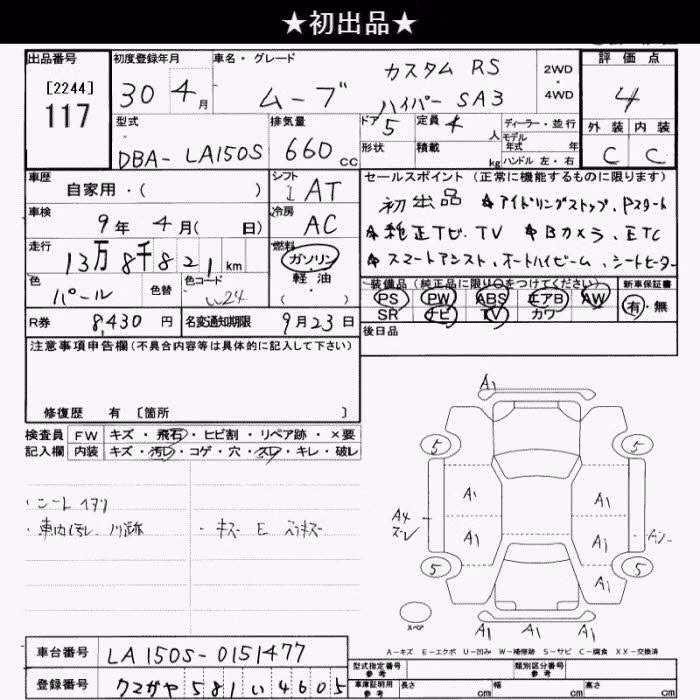 ★初出品★
出品番号
[2244]
117
初度登録年月
30年4月
車名・グレード
ムーブ
カスタム RS
ハイパー SA3
2WD
4WD
評価点
4
外装 内装
C C
型式
DBA-LA150S
排気量
660cc
ドア
5
形状
定員
4人
積載
kg
ディーラー・並行
モデル
年式 年
ハンドル 左・右
車歴
自家用・( )
シフト
AT
セールスポイント (正常に機能するものに限ります)
初出品 ☆アイドリングストップ、Pスタート
☆純正ナビ、TV ☆Bカメラ、ETC
☆スマートアシスト、オートハイビーム、シートヒーター
車検
9年 4月( 日)
冷房
AC
走行
13万8千821km
燃料
ガソリン
軽油
( )
色
パール
色替
色コード
W24
装備品 (純正品に限り○をつけてください)
PS PW ABS エアB AW
SR ナビ TV カワ
新車保証書
有・無
R券
8,430円
名変通知期限
9月23日
後日品
注意事項申告欄(不具合内容等は具体的に記入して下さい)
修復歴 有 [箇所 ]
検査員 FW キズ・飛石・ヒビ割・リペア跡・×要
記入欄 内装 キズ・汚レ・コゲ・穴・スレ・キレ・破レ
・シート
・車内汚レ、ノリ跡
・キズ E
A1
5 5
A1 A1
A4
スレ
A1 A1
A1
5 5
A1 A1 A1
スペア
A-キズ E-エクボ U-凹み W-補修跡 S-サビ C-腐食 XX-交換済
車台番号
LA150S-0151477
登録番号
クマガヤ 581 い 4605
型式指定番号
参考
類別区分番号
参考
車庫証明用
参考
長さ cm
幅 cm
高さ cm